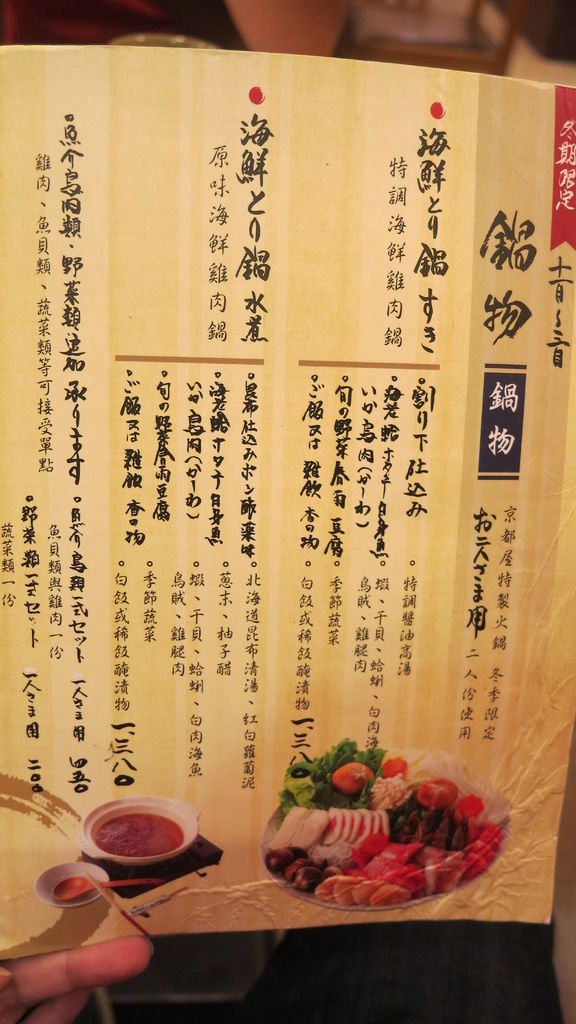 冬期限定
十一月～三月
鍋物
鍋物
京都屋特製火鍋 冬季限定
お二人さま用 二人份使用
海鮮とり鍋 すき
特調海鮮雞肉鍋
割り下仕込み
特調醬油高湯
海老 蛤 ホタテ 白身魚
いか 鳥肉(かしわ)
蝦、干貝、蛤蜊、白肉海魚
烏賊、雞腿肉
旬の野菜 春雨 豆腐
季節蔬菜
ご飯又は雜飲 香の物
白飯或稀飯醃漬物
一、三八〇
海鮮とり鍋 水煮
原味海鮮雞肉鍋
昆布仕込みポン酢薬味
北海道昆布清湯、紅白蘿蔔泥
蔥末、柚子醋
海老 蛤 ホタテ 白身魚
いか 鳥肉(かしわ)
蝦、干貝、蛤蜊、白肉海魚
烏賊、雞腿肉
旬の野菜 春雨 豆腐
季節蔬菜
ご飯又は雜飲 香の物
白飯或稀飯醃漬物
一、三八〇
魚介鳥肉類、野菜類追加 承ります
雞肉、魚貝類、蔬菜類等可接受單點
魚介鳥類一式セット 一人さま用 四五〇
魚貝類與雞肉一份
野菜類一式セット 一人さま用 二〇〇
蔬菜類一份